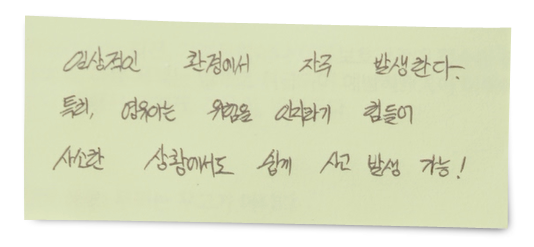 일상적인 환경에서 자주 발생한다.
특히, 영유아는 위험을 인지하기 힘들어
사소한 상황에서도 쉽게 사고 발생 가능!